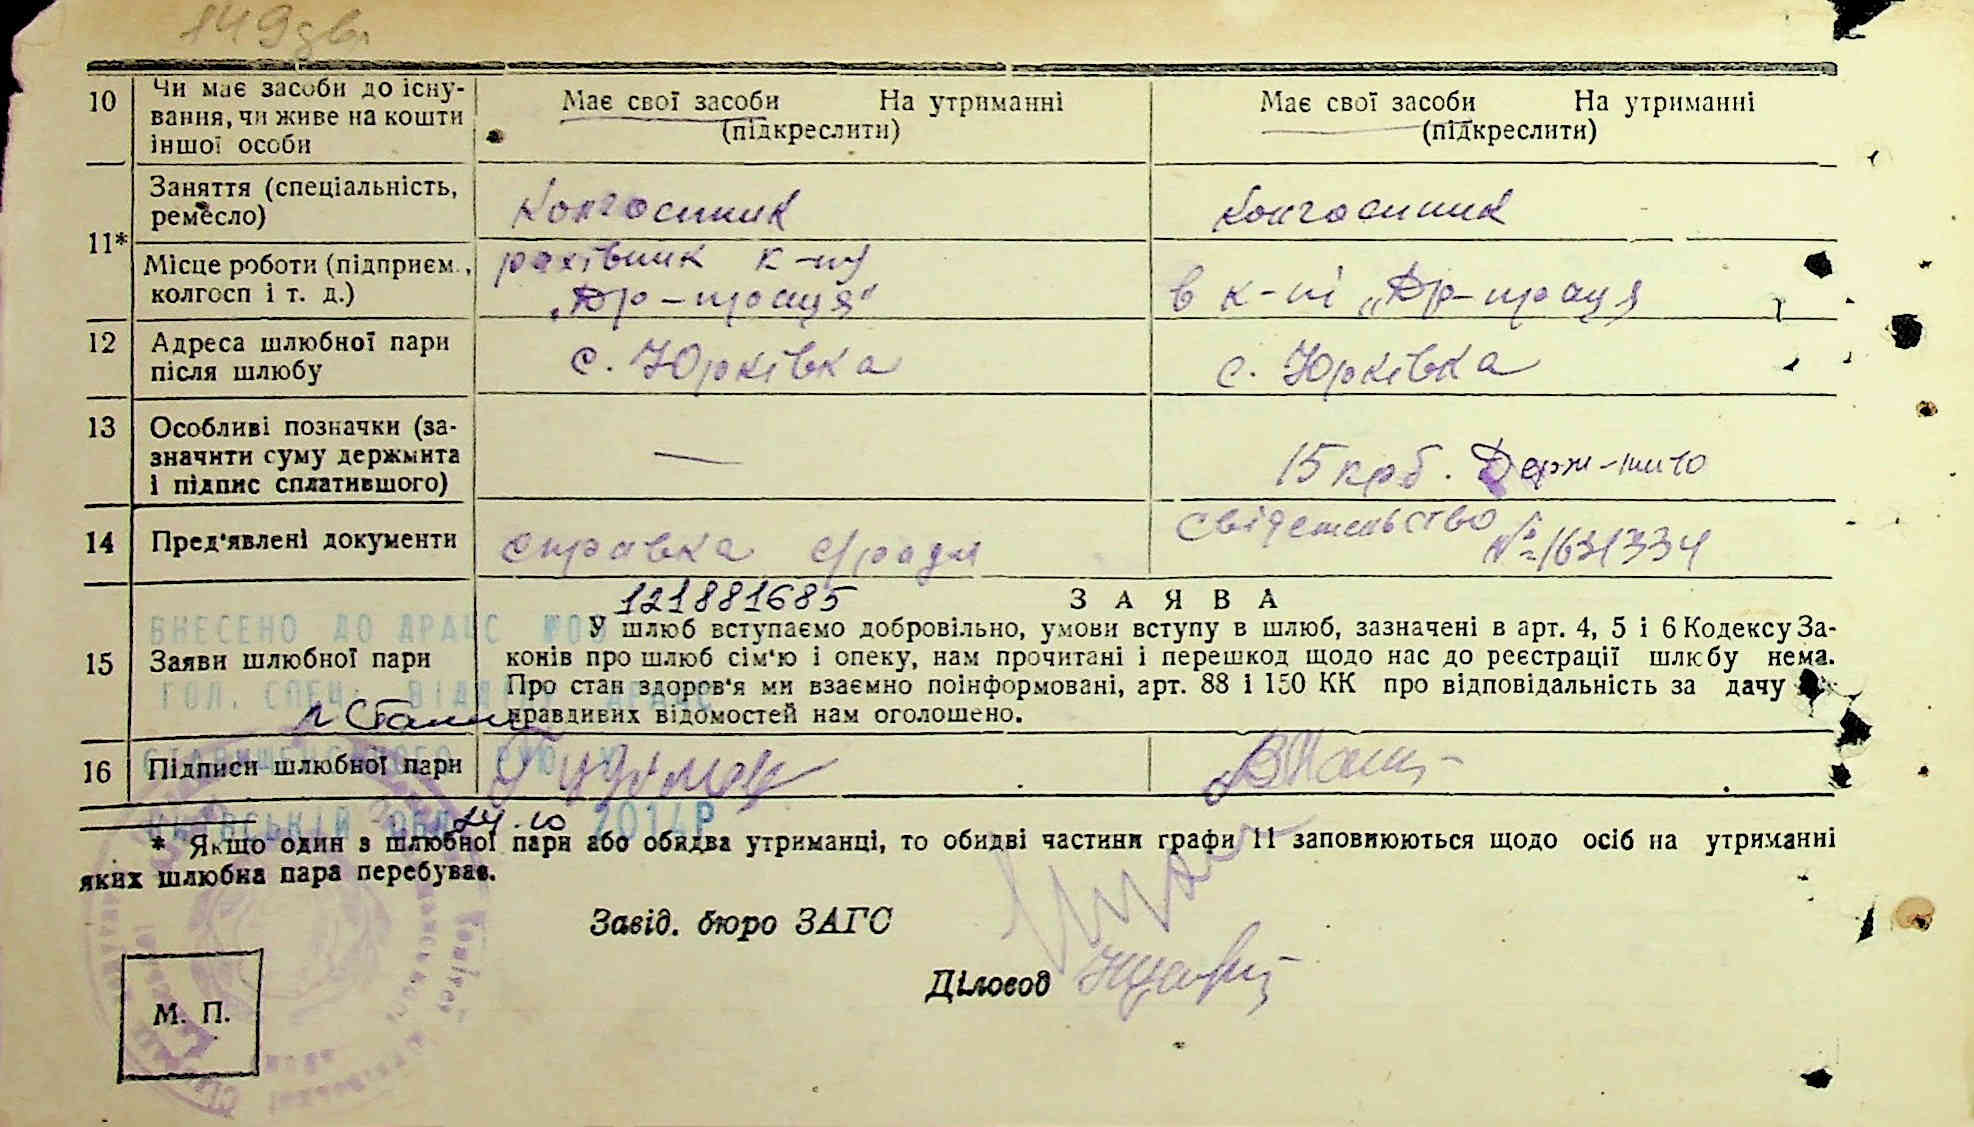 149 зв.
10 Чи має засоби до існу-
вання, чи живе на кошти
іншої особи
Має свої засоби На утриманні
(підкреслити)
Має свої засоби На утриманні
(підкреслити)
11* Заняття (спеціальність,
ремесло)
Колгоспник
Колгоспник
Місце роботи (підприєм.,
колгосп і т. д.)
рахівник к-пу
„Др-праця"
в к-пі „Др-праця
12 Адреса шлюбної пари
після шлюбу
с. Юрківка
с. Юрківка
13 Особливі позначки (за-
значити суму держмита
і підпис сплатившого)
—
15 крб. Держ-мито
14 Пред'явлені документи
справка с/ради
Свідетельство
№ 1631334
121881685
З А Я В А
ВНЕСЕНО ДО ДРАЦС
15 Заяви шлюбної пари
У шлюб вступаємо добровільно, умови вступу в шлюб, зазначені в арт. 4, 5 і 6 Кодексу За-
конів про шлюб сім'ю і опеку, нам прочитані і перешкод щодо нас до реєстрації шлюбу нема.
Про стан здоров'я ми взаємно поінформовані, арт. 88 і 150 КК про відповідальність за дачу
правдивих відомостей нам оголошено.
ГОЛ. СПЕЦ. ВІДДІЛУ ДРАЦС
СТАВИЩЕНСЬКОГО РУЮ У
16 Підписи шлюбної пари
КИЇВСЬКІЙ ОБЛ. 24.10 2014Р
* Якщо один з шлюбної пари або обидва утриманці, то обидві частини графи 11 заповнюються щодо осіб на утриманні
яких шлюбна пара перебуває.
Завід. бюро ЗАГС
Діловод
М. П.